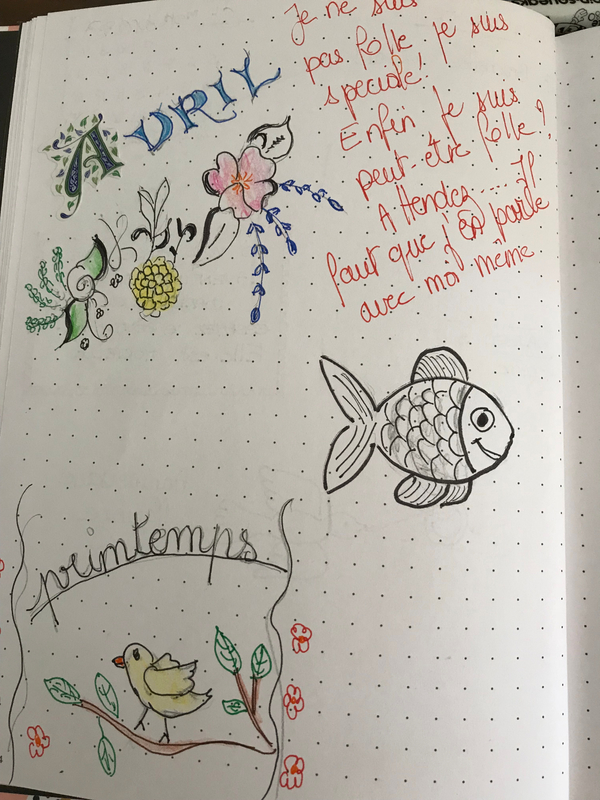 AVRIL
Je ne suis
pas folle je suis
speciale!
Enfin, je suis
peut-être folle?
Attendez.... Il
faut que j'en parle
avec moi même
printemps